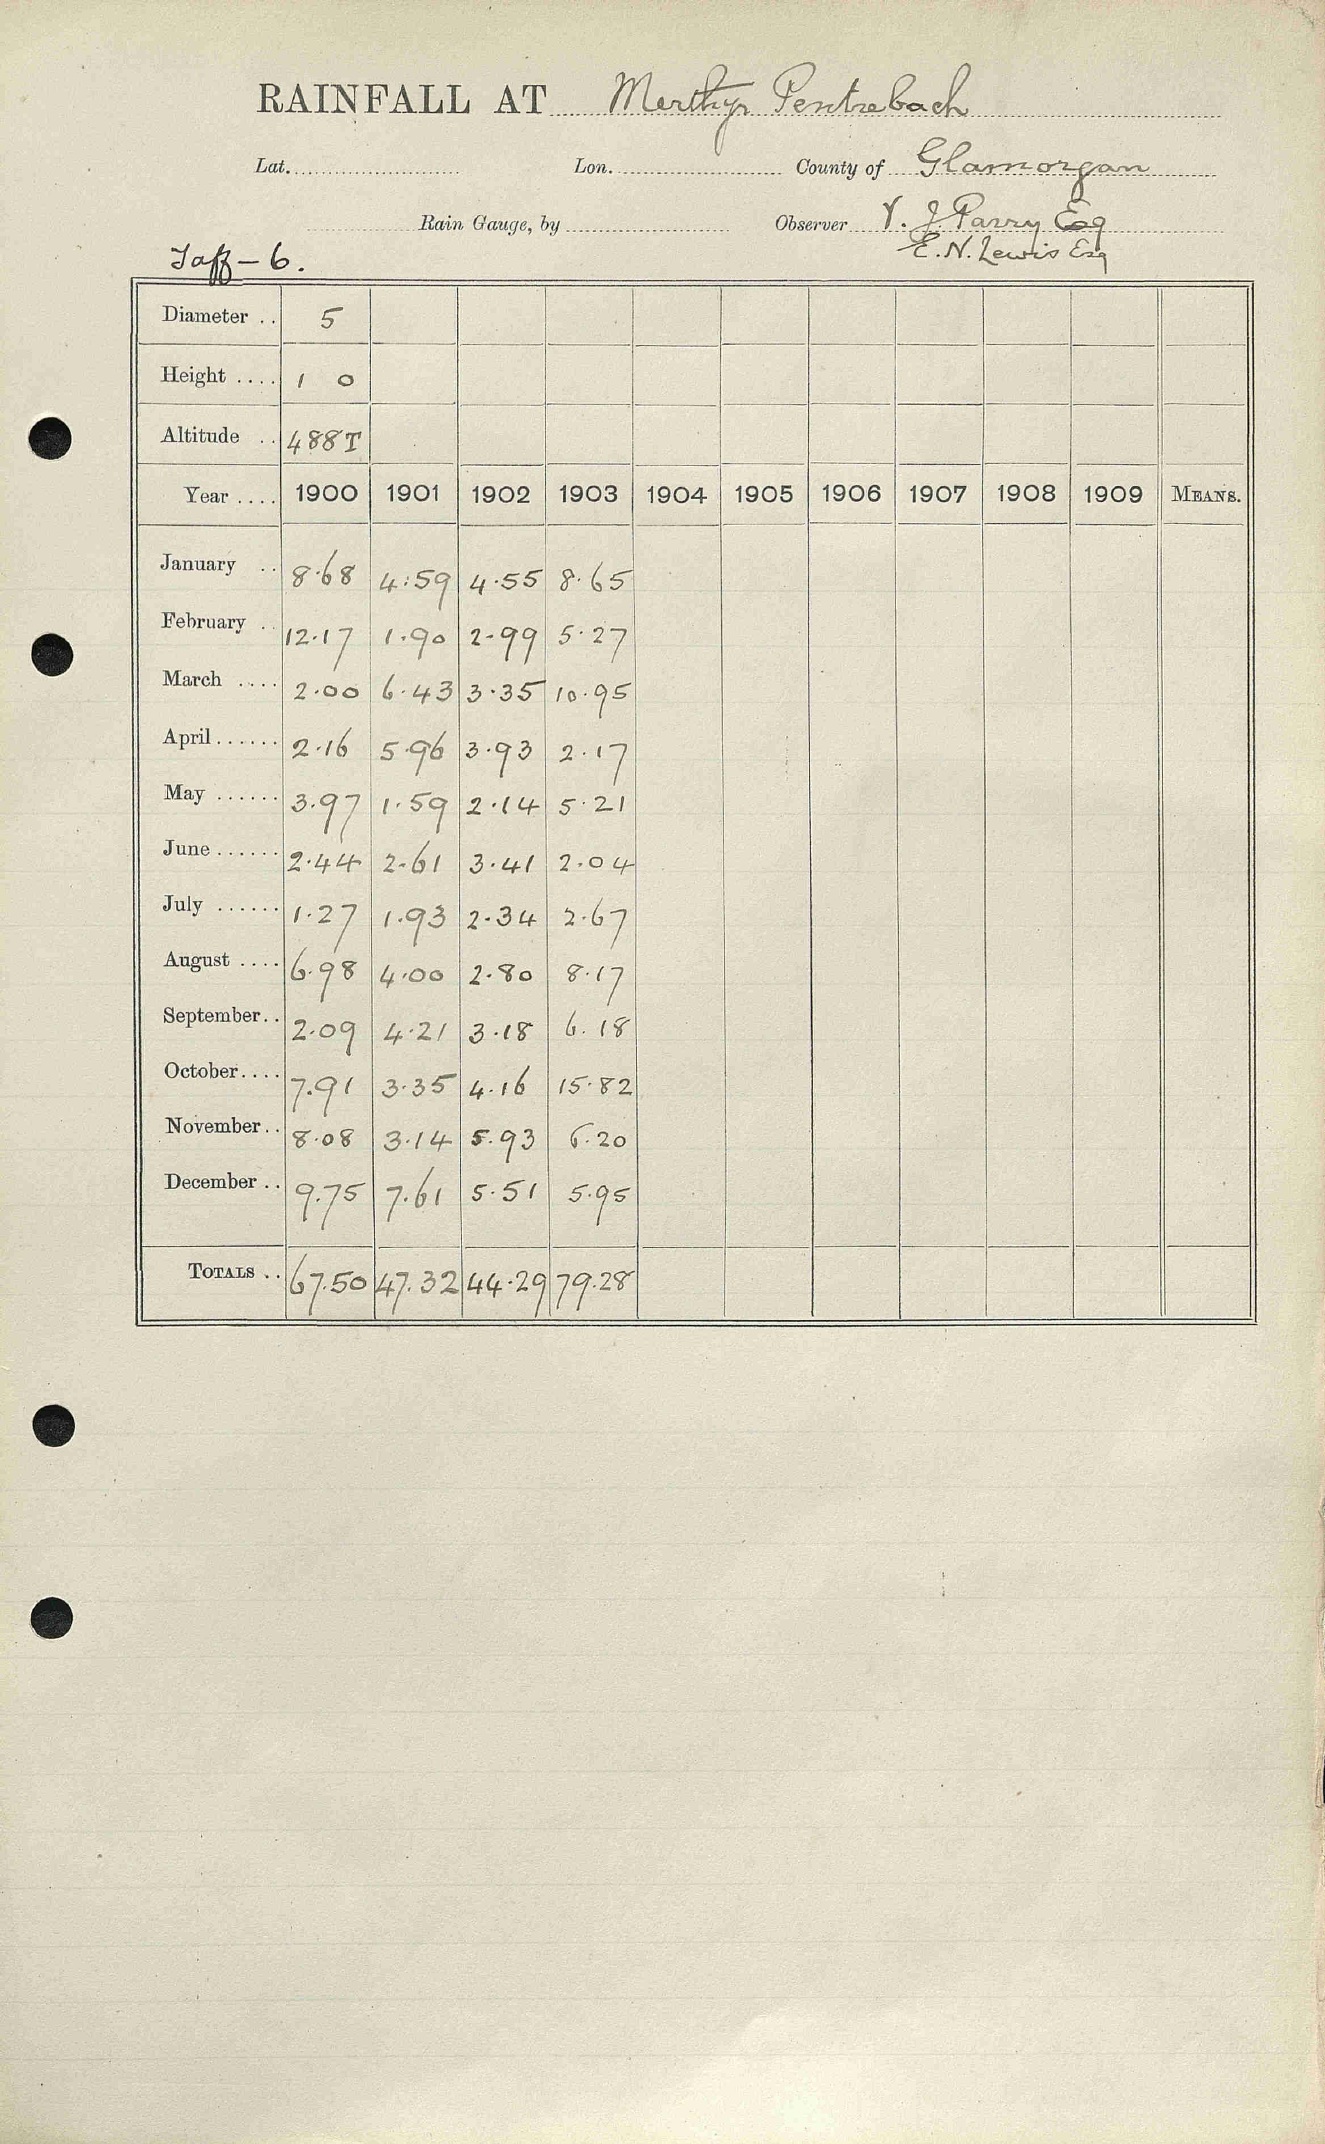 RAINFALL AT Merthyr Pentrebach
Lat. Lon. County of Glamorgan
Rain Gauge, by Observer V. J. Parry Esq
E. N. Lewis Esq
Taff - 6.
Diameter .. 5
Height .... 1 0
Altitude .. 488T
Year .... 1900 1901 1902 1903 1904 1905 1906 1907 1908 1909 MEANS.
January .. 8.68 4.59 4.55 8.65
February .. 12.17 1.90 2.99 5.27
March .... 2.00 6.43 3.35 10.95
April...... 2.16 5.96 3.93 2.17
May ...... 3.97 1.59 2.14 5.21
June ...... 2.44 2.61 3.41 2.04
July ...... 1.27 1.93 2.34 2.67
August .... 6.98 4.00 2.80 8.17
September.. 2.09 4.21 3.18 6.18
October.... 7.91 3.35 4.16 15.82
November.. 8.08 3.14 5.93 6.20
December .. 9.75 7.61 5.51 5.95
TOTALS .. 67.50 47.32 44.29 79.28